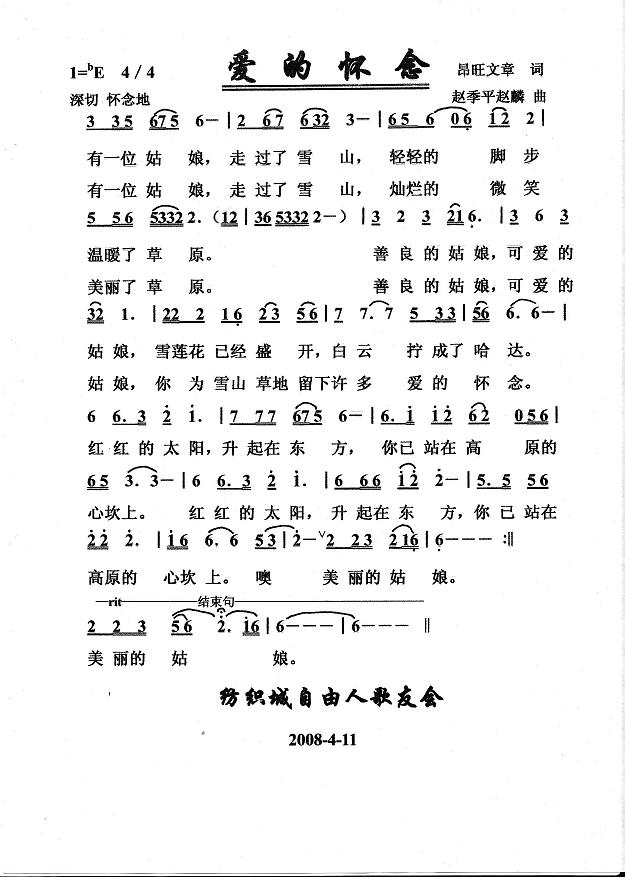 爱的怀念
1=ᵇE 4/4 昂旺文章 词
深切 怀念地 赵季平赵麟 曲
3 35 675 6－| 2 67 632 3－| 65 6 06 12 2|
有一位姑 娘，走 过了 雪 山， 轻轻的 脚 步
有一位姑 娘，走 过了 雪 山， 灿烂的 微 笑
5 56 5332 2.（12|36 5332 2－）|3 2 3 21 6. |3 6 3
温暖了 草 原。 善 良 的 姑 娘，可 爱 的
美丽了 草 原。 善 良 的 姑 娘，可 爱 的
32 1. |22 2 16 23 56|7 7.7 5 33|56 6.6－|
姑 娘，雪莲花 已经 盛 开，白 云 拧 成了 哈 达。
姑 娘，你 为 雪山 草地 留下许 多 爱 的 怀 念。
6 6.3 2 1. |7 77 675 6－|6.1 12 62 056|
红 红 的 太 阳，升 起在 东 方， 你已 站在 高 原的
65 3.3－|6 6.3 2 1. |6 66 12 2－|5.5 56
心坎上。 红 红 的 太 阳，升 起在 东 方，你 已 站在
22 2. |16 6.6 53|2－ⱽ2 23 216|6－－－ :||
高原的 心坎 上。噢 美 丽的 姑 娘。
—rit————结束句————————
2 23 56 2. 16|6－－－|6－－－ ||
美 丽的 姑 娘。
纺织城自由人歌友会
2008-4-11